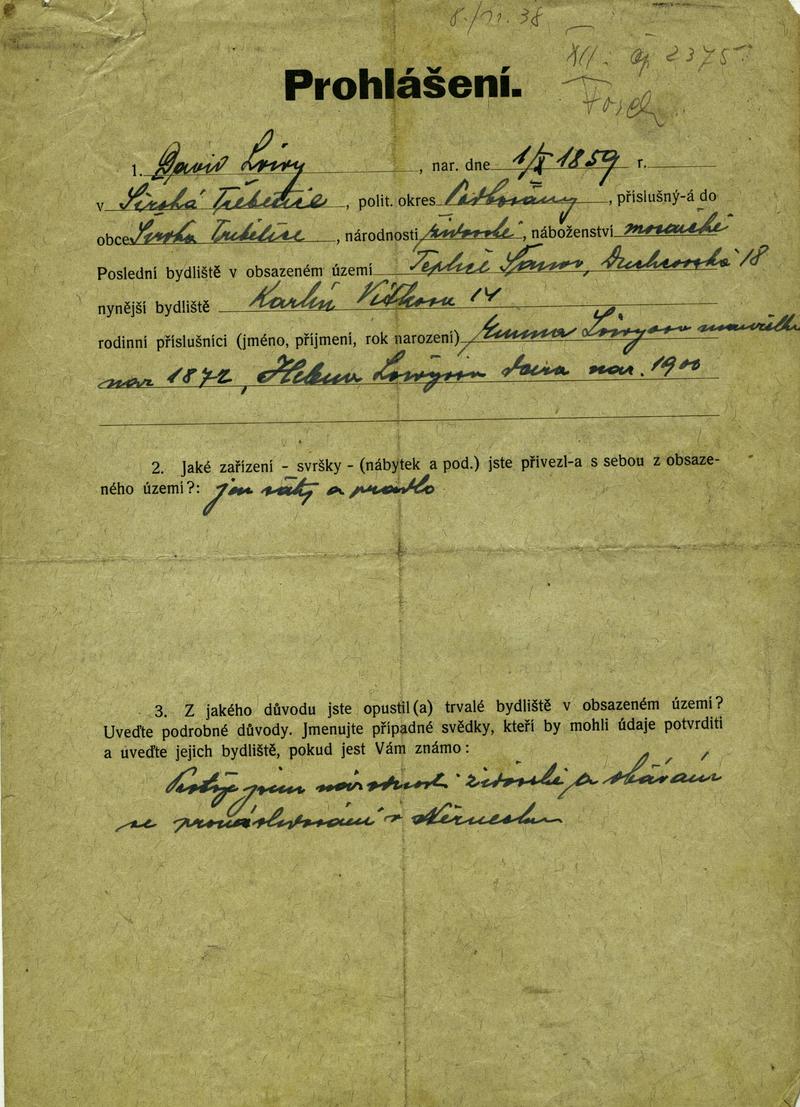 8./11. 38
XII. čj 2375
Prohlášení.
1. David Löwy, nar. dne 1/X 1859 r.
v Široká Třebčice, polit. okres Podbořany, příslušný-á do
obce Široka Třebčice, národnosti židovské, náboženství mosaické
Poslední bydliště v obsazeném území Teplice Šanov, Duchcovská 18
nynější bydliště Karlín Vítkova 14
rodinní příslušníci (jméno, příjmení, rok narození) Emma Löwyová manželka
nar 1872, Helena Löwyova dcera nar. 1900
2. Jaké zařízení - svršky - (nábytek a pod.) jste přivezl-a s sebou z obsaze-
ného území?: jen šaty a pradlo
3. Z jakého důvodu jste opustil(a) trvalé bydliště v obsazeném území?
Uveďte podrobné důvody. Jmenujte případné svědky, kteří by mohli údaje potvrditi
a uveďte jejich bydliště, pokud jest Vám známo:
jsem národnosti židovské a obávám
se pronásledování v Německu